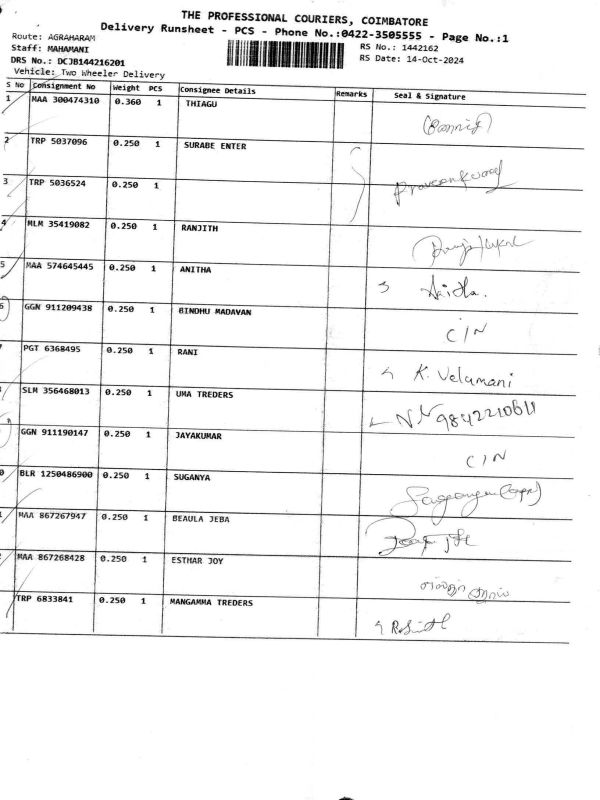 THE PROFESSIONAL COURIERS, COIMBATORE
Delivery Runsheet - PCS - Phone No.:0422-3505555 - Page No.:1
Route: AGRAHARAM
Staff: MAHAMANI RS No.: 1442162
DRS No.: DCJB144216201 RS Date: 14-Oct-2024
Vehicle: Two Wheeler Delivery
S No Consignment No Weight PCS Consignee Details Remarks Seal & Signature
1 MAA 300474310 0.360 1 THIAGU
2 TRP 5037096 0.250 1 SURABE ENTER
3 TRP 5036524 0.250 1
4 MLM 35419082 0.250 1 RANJITH
5 MAA 574645445 0.250 1 ANITHA
6 GGN 911209438 0.250 1 BINDHU MADAVAN C/N
PGT 6368495 0.250 1 RANI K. Velumani
SLM 356468013 0.250 1 UMA TREDERS
GGN 911190147 0.250 1 JAYAKUMAR C/N
0 BLR 1250486900 0.250 1 SUGANYA
MAA 867267947 0.250 1 BEAULA JEBA
MAA 867268428 0.250 1 ESTHAR JOY
TRP 6833841 0.250 1 MANGAMMA TREDERS